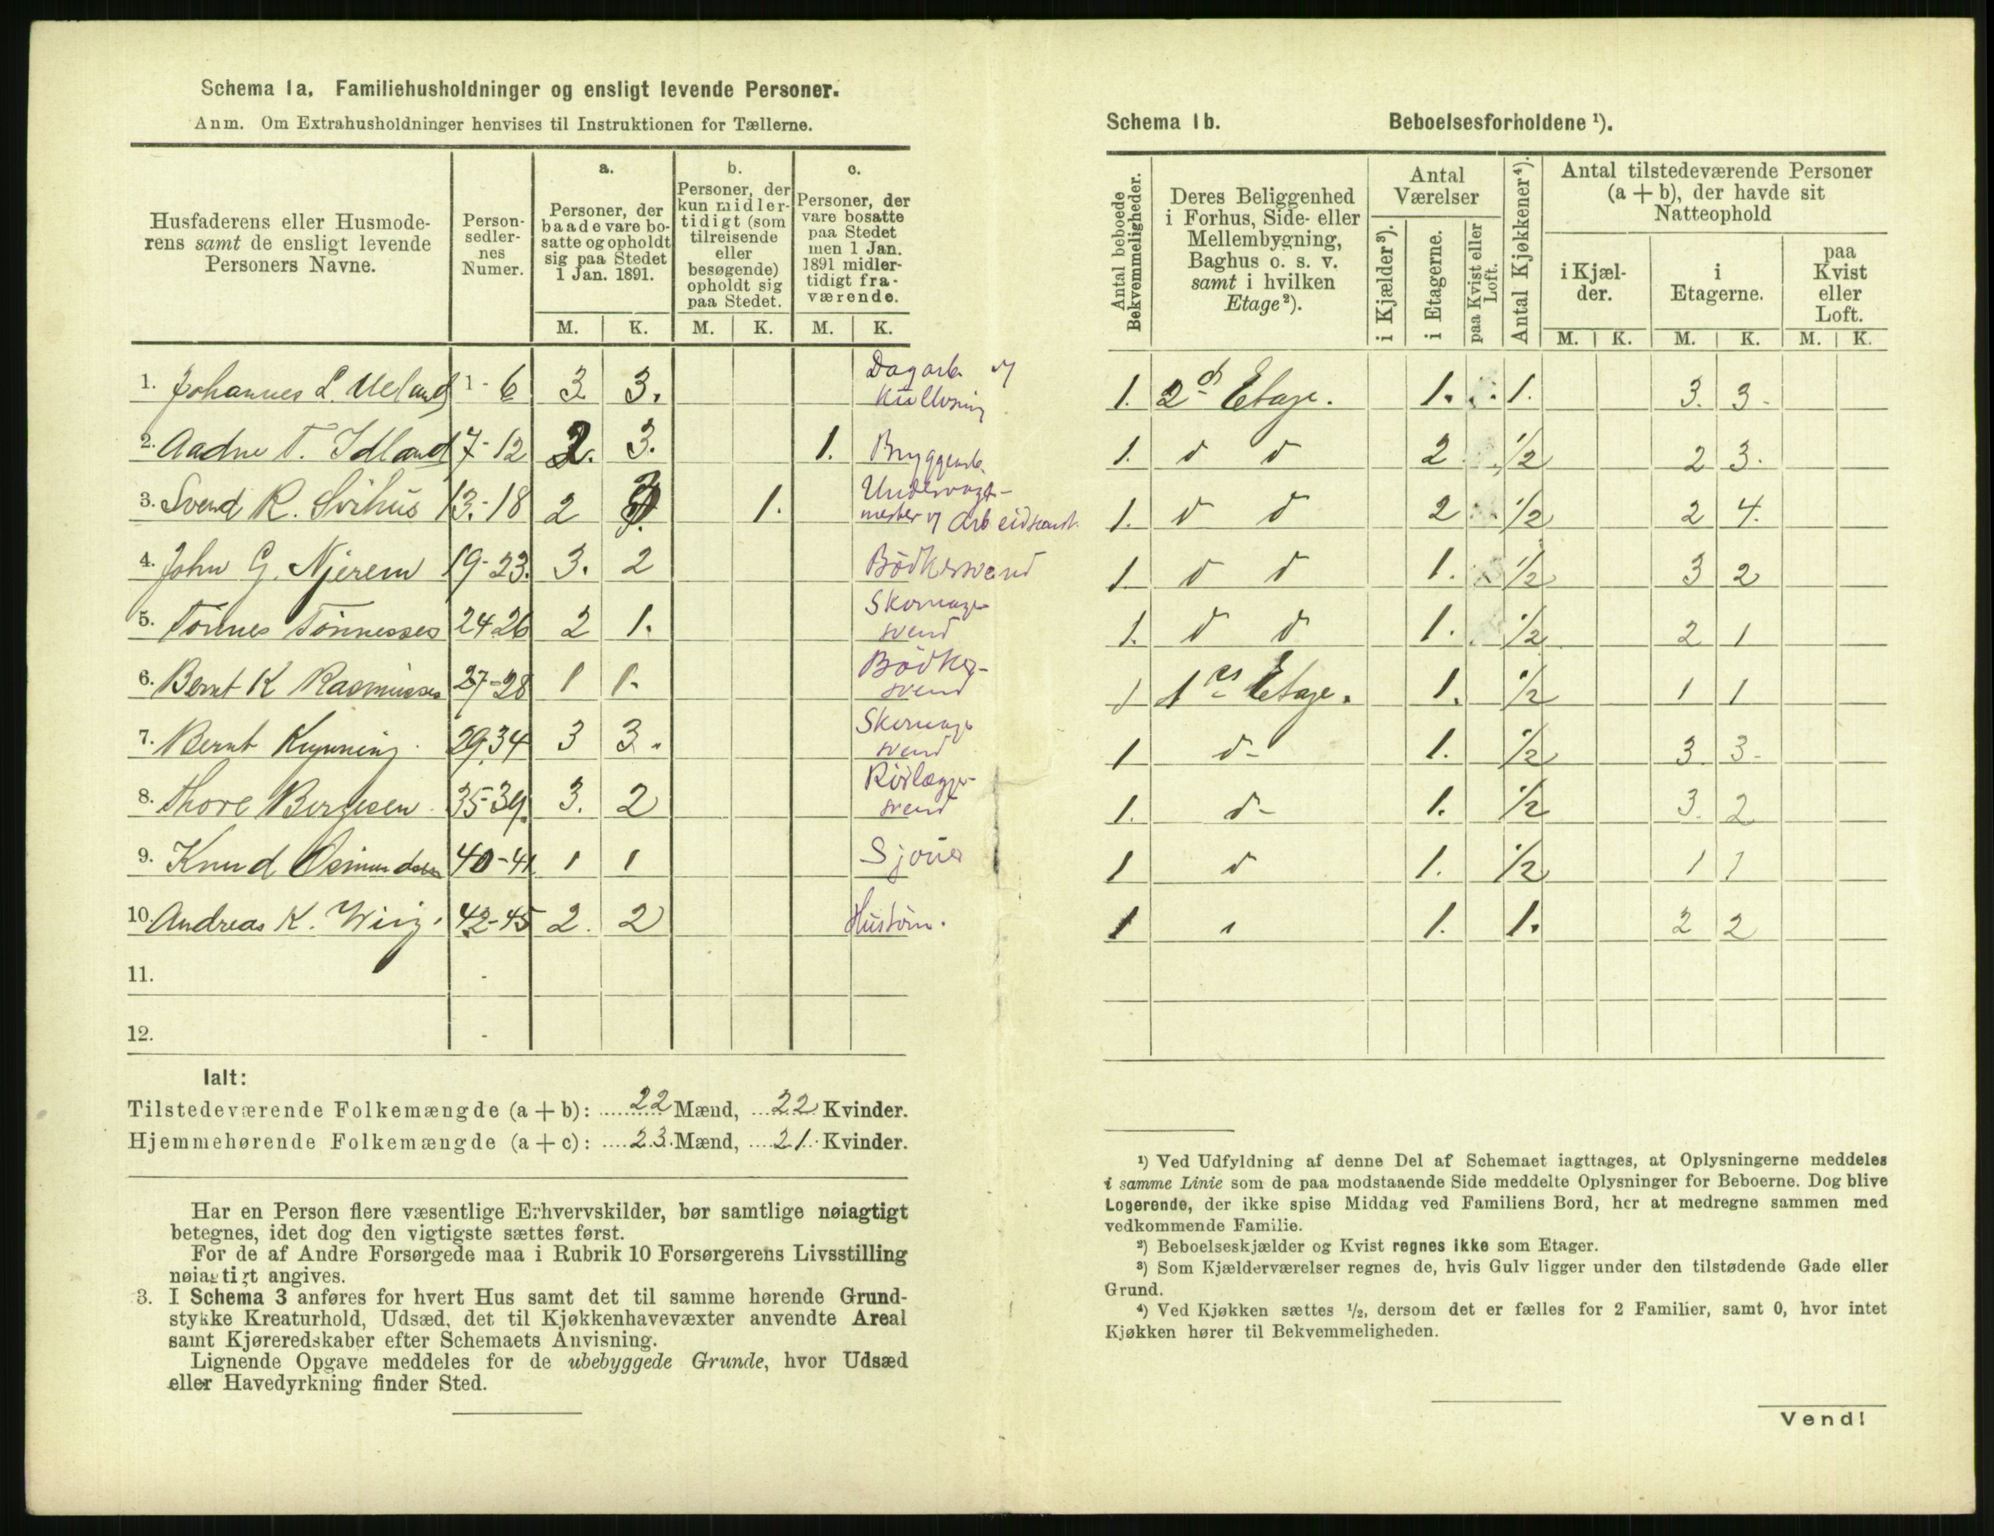 Schema 1a. Familiehusholdninger og ensligt levende Personer.
Anm. Om Extrahusholdninger henvises til Instruktionen for Tællerne.
Husfaderens eller Husmode-
rens samt de ensligt levende
Personers Navne.
Person-
sedler-
nes
Numer.
a.
Personer, der
baade vare bo-
satte og opholdt
sig paa Stedet
1 Jan. 1891.
b.
Personer, der
kun midler-
tidigt (som
tilreisende
eller
besøgende)
opholdt sig
paa Stedet.
c.
Personer, der
vare bosatte
paa Stedet
men 1 Jan.
1891 midler-
tidigt fra-
værende.
M. K. M. K. M. K.
1. Johannes L. Ueland 1-6 3 3. Dagarb. og
2. Aadne T. Idland 7-12 2. 3. 1. Bryggearb.
3. Svend R. Svihus 13.-18 2 1. Undervagt-
mester og Arbeidsmand
4. John G. Njerem 19-23. 3. 2 Bödkersvend
5. Tönnes Tönnessen 24 26 2 1. Skomager
svend
6. Bernt K Rasmussen 27-28 1 1. Bödker-
svend
7. Bernt 29.34 3 3. Skomager
svend
8. Thore Bergesen 35-39. 3. 2 Rörlægger-
svend
9. Knud Osmundsen 40-41 1 1 Sjouer
10. Andreas K. Wiig. 42-45 2. 2 Hustöm.
11.
12.
Ialt:
Tilstedeværende Folkemængde (a + b): 22 Mænd, 22 Kvinder.
Hjemmehørende Folkemængde (a + c): 23 Mænd, 21 Kvinder.
Har en Person flere væsentlige Erhvervskilder, bør samtlige nøiagtigt
betegnes, idet dog den vigtigste sættes først.
For de af Andre Forsørgede maa i Rubrik 10 Forsørgerens Livsstilling
nøiagtigt angives.
3. I Schema 3 anføres for hvert Hus samt det til samme hørende Grund-
stykke Kreaturhold, Udsæd, det til Kjøkkenhavevæxter anvendte Areal
samt Kjøreredskaber efter Schemaets Anvisning.
Lignende Opgave meddeles for de ubebyggede Grunde, hvor Udsæd
eller Havedyrkning finder Sted.
Schema 1b. Beboelsesforholdene ¹).
Antal beboede
Bekvemmeligheder.
Deres Beliggenhed
i Forhus, Side- eller
Mellembygning,
Baghus o. s. v.
samt i hvilken
Etage²).
Antal
Værelser
i Kjælder³).
i Etagerne.
paa Kvist eller
Loft.
Antal Kjøkkener⁴).
Antal tilstedeværende Personer
(a + b), der havde sit
Natteophold
i Kjæl-
der.
i
Etagerne.
paa
Kvist
eller
Loft.
M. K. M. K. M. K.
1. 2d Etage. 1. 1. 3. 3.
1. d d 2 1/2 2 3.
1. d d 2 1/2 2 4.
1 d d 1. 1/2 3 2
1. d d 1. 1/2 2 1
1 1ste Etage. 1. 1/2 1 1
1 d- 1. 1/2 3 3.
1. d- 1. 1/2 3. 2
1 d 1. 1/2 1 1
1 1. 1. 2 2
¹) Ved Udfyldning af denne Del af Schemaet iagttages, at Oplysningerne meddeles
i samme Linie som de paa modstaaende Side meddelte Oplysninger for Beboerne. Dog blive
Logerende, der ikke spise Middag ved Familiens Bord, her at medregne sammen med
vedkommende Familie.
²) Beboelseskjælder og Kvist regnes ikke som Etager.
³) Som Kjælderværelser regnes de, hvis Gulv ligger under den tilstødende Gade eller
Grund.
⁴) Ved Kjøkken sættes ¹/₂, dersom det er fælles for 2 Familier, samt 0, hvor intet
Kjøkken hører til Bekvemmeligheden.
Vend!